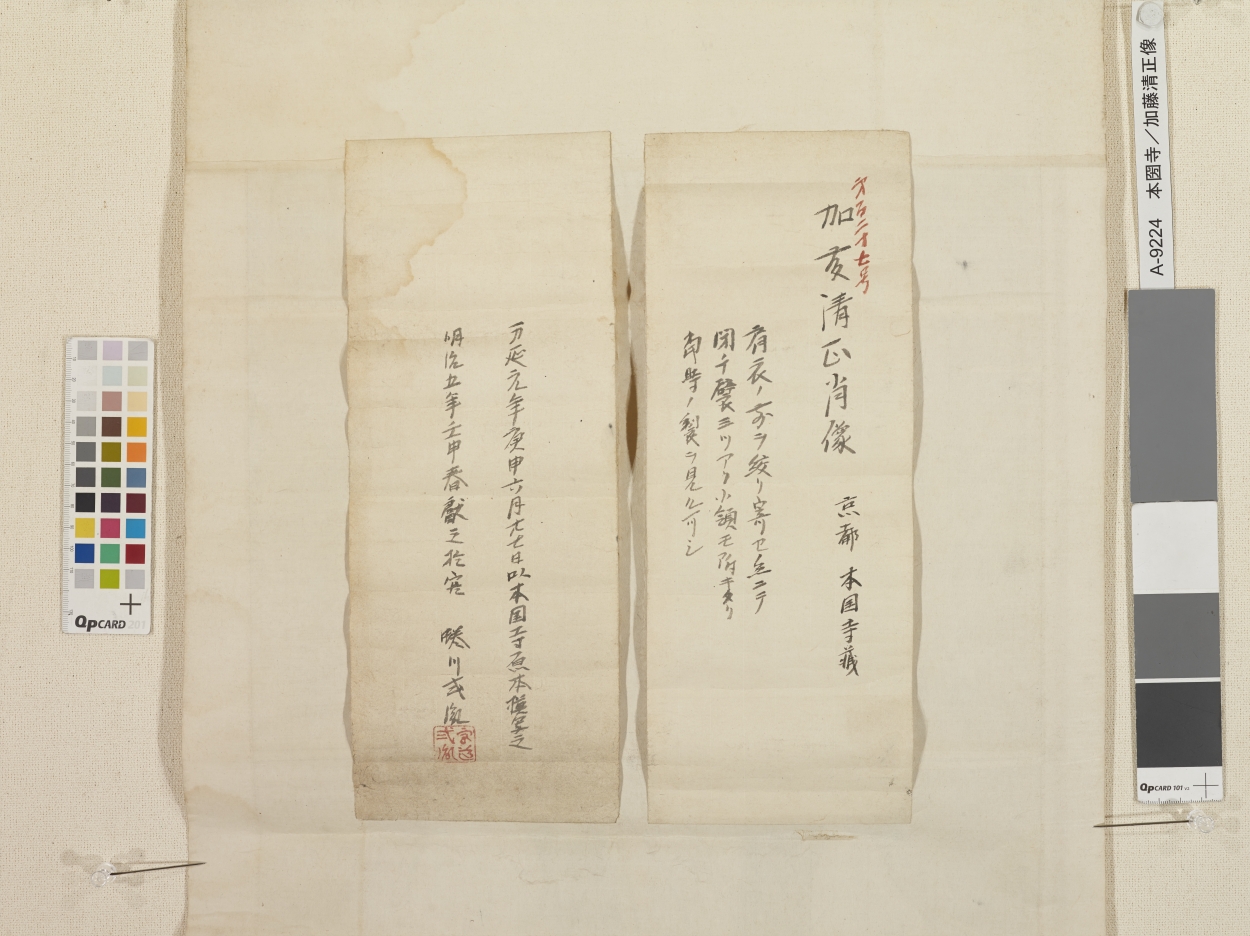 第百二十七号
加藤清正肖像　京都　本国寺蔵
肩衣ノ前ヲ絞リ寄リセ糸ニテ
閉チ襞三ツアリ小領モ附キタリ
当時ノ製ヲ見ル可シ
万延元年庚申六月廿七日以本国寺原本模写之
明治五年壬申春献之於官　蜷川式胤
A-9224　本圀寺／加藤清正像
QpCARD 201
QpCARD 101